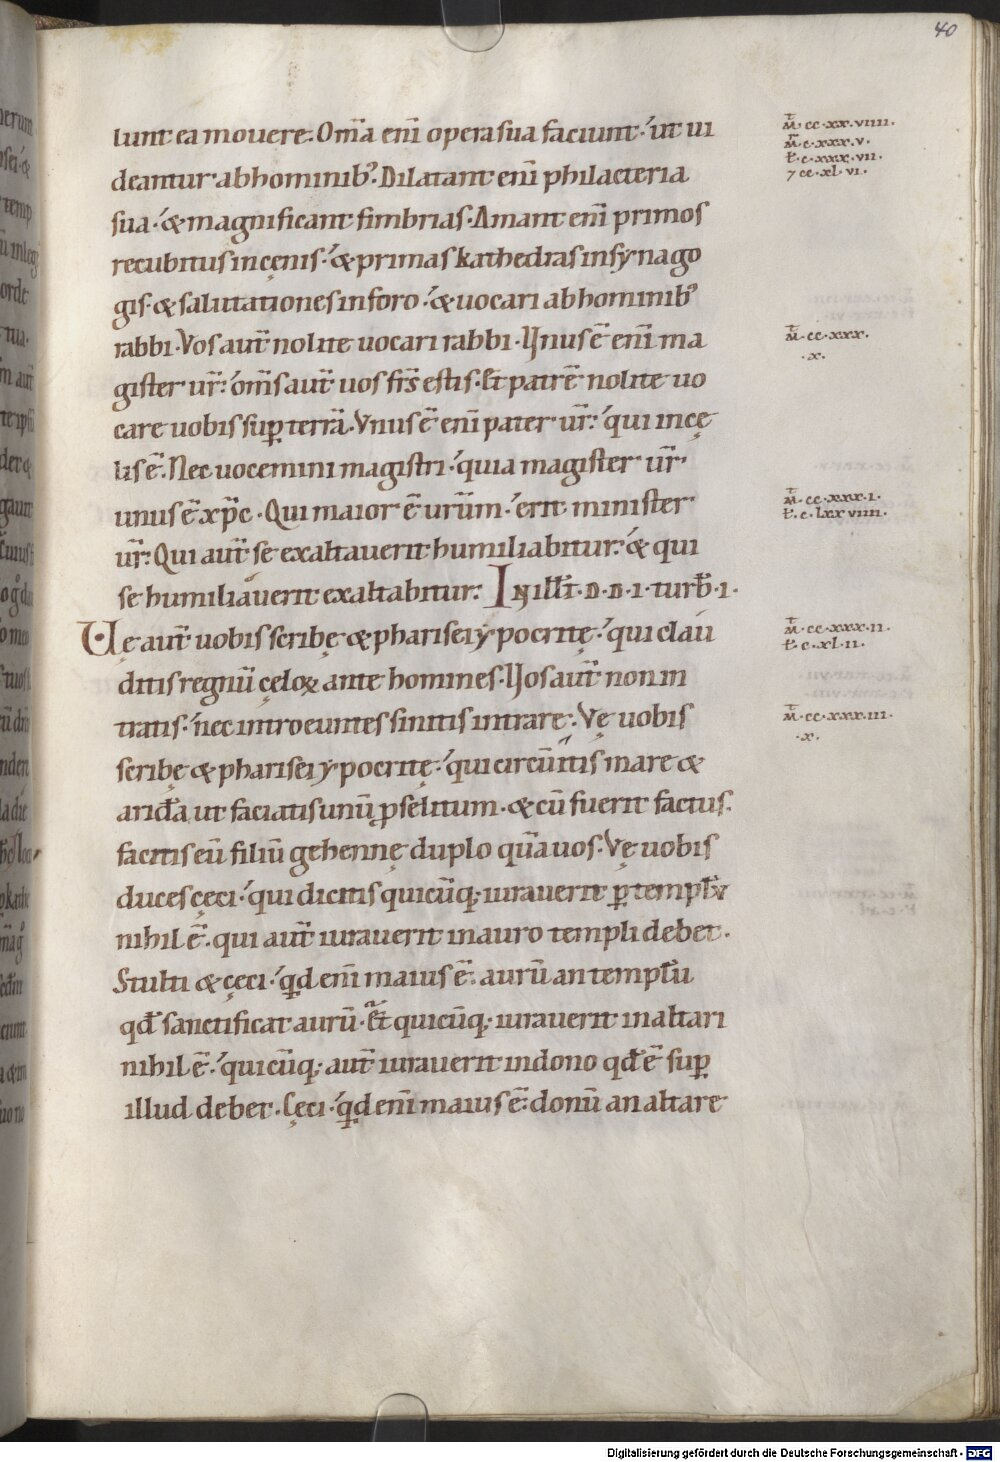 40
lunt ea mouere. Om̄a enī opera sua faciunt. ut ui
deantur ab hominib; Dilatant enī philacteria
sua. & magnificant fimbrias. Amant enī primos
recubitus in cęnis. & primas kathedras in synago
gis. & salutationes in foro. & uocari ab hominib;
rabbi. Vos aut̄ nolite uocari rabbi. Unus ē enī ma
gister ur̄. om̄s aut̄ uos fr̄s estis. Et patrē nolite uo
care uobis sup̱ terrā. Vnus ē enī pater ur̄. qui in cę
lis ē. Nec uocemini magistri. quia magister ur̄
unus ē xp̄c. Qui maior ē urūm. erit minister
ur̄. Qui aut̄ se exaltauerit humiliabitur. & qui
se humiliauerit exaltabitur. IN ill̄ t̄. D. D. I. turb̄. I.
Uę aut̄ uobis scribę & pharisei ypocritę. qui clau
ditis regnū cęloꝝ ante homines. Uos aut̄ non in
tratis. nec introeuntes sinitis intrare. Vę uobis
scribę & pharisei ypocritę. qui circūitis mare &
aridā ut faciatis unū ꝓselitum. & cū fuerit factus.
facitis eū filiū gehennę duplo quā uos. Vę uobis
duces cęci. qui dicitis quicūq; iurauerit ꝑ templū
nihil ē. qui aut̄ iurauerit in auro templi debet.
Stulti & cęci. qꝺ enī maius ē. aurū an templū
qd̄ sanctificat aurū. Et quicūq; iurauerit in altari
nihil ē. quicūq; aut̄ iurauerit in dono qd̄ ē sup̱
illud debet. Cęci. qꝺ enī maius ē. donū an altare
M̄. cc. xx. viiii.
M̄. c. xxx. v.
t̄. c. xxx. vii.
7 cc. xl. vi.
M̄. cc. xxx.
. x.
M̄. cc. xxx. i.
t̄. c. lxx viiii.
M̄. cc. xxx. ii.
t̄. c. xl. ii.
M̄. cc. xxx. iii.
. x.
Digitalisierung gefördert durch die Deutsche Forschungsgemeinschaft - DFG